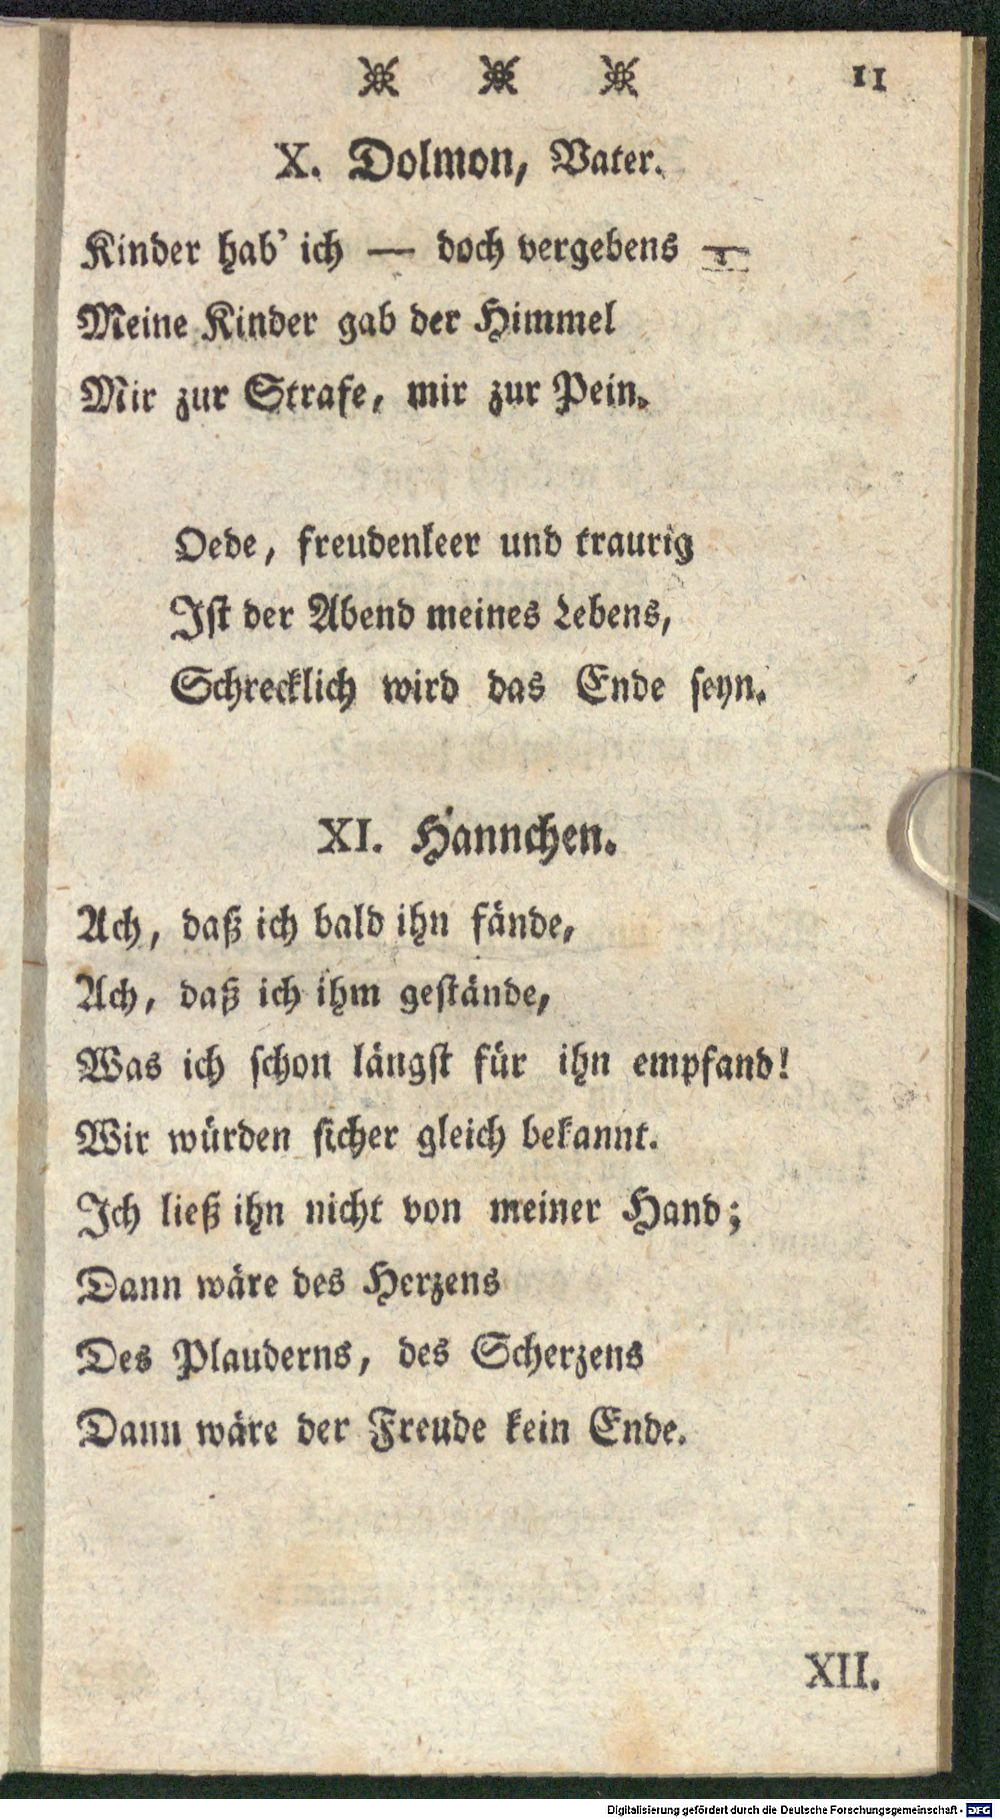 11
X. Dolmon, Vater.
Kinder hab' ich — doch vergebens —
Meine Kinder gab der Himmel
Mir zur Strafe, mir zur Pein.
Oede, freudenleer und traurig
Ist der Abend meines Lebens,
Schrecklich wird das Ende seyn.
XI. Hannchen.
Ach, daß ich bald ihn fände,
Ach, daß ich ihm gestände,
Was ich schon längst für ihn empfand!
Wir würden sicher gleich bekannt.
Ich ließ ihn nicht von meiner Hand;
Dann wäre des Herzens
Des Plauderns, des Scherzens
Dann wäre der Freude kein Ende.
XII.
Digitalisierung gefördert durch die Deutsche Forschungsgemeinschaft - DFG